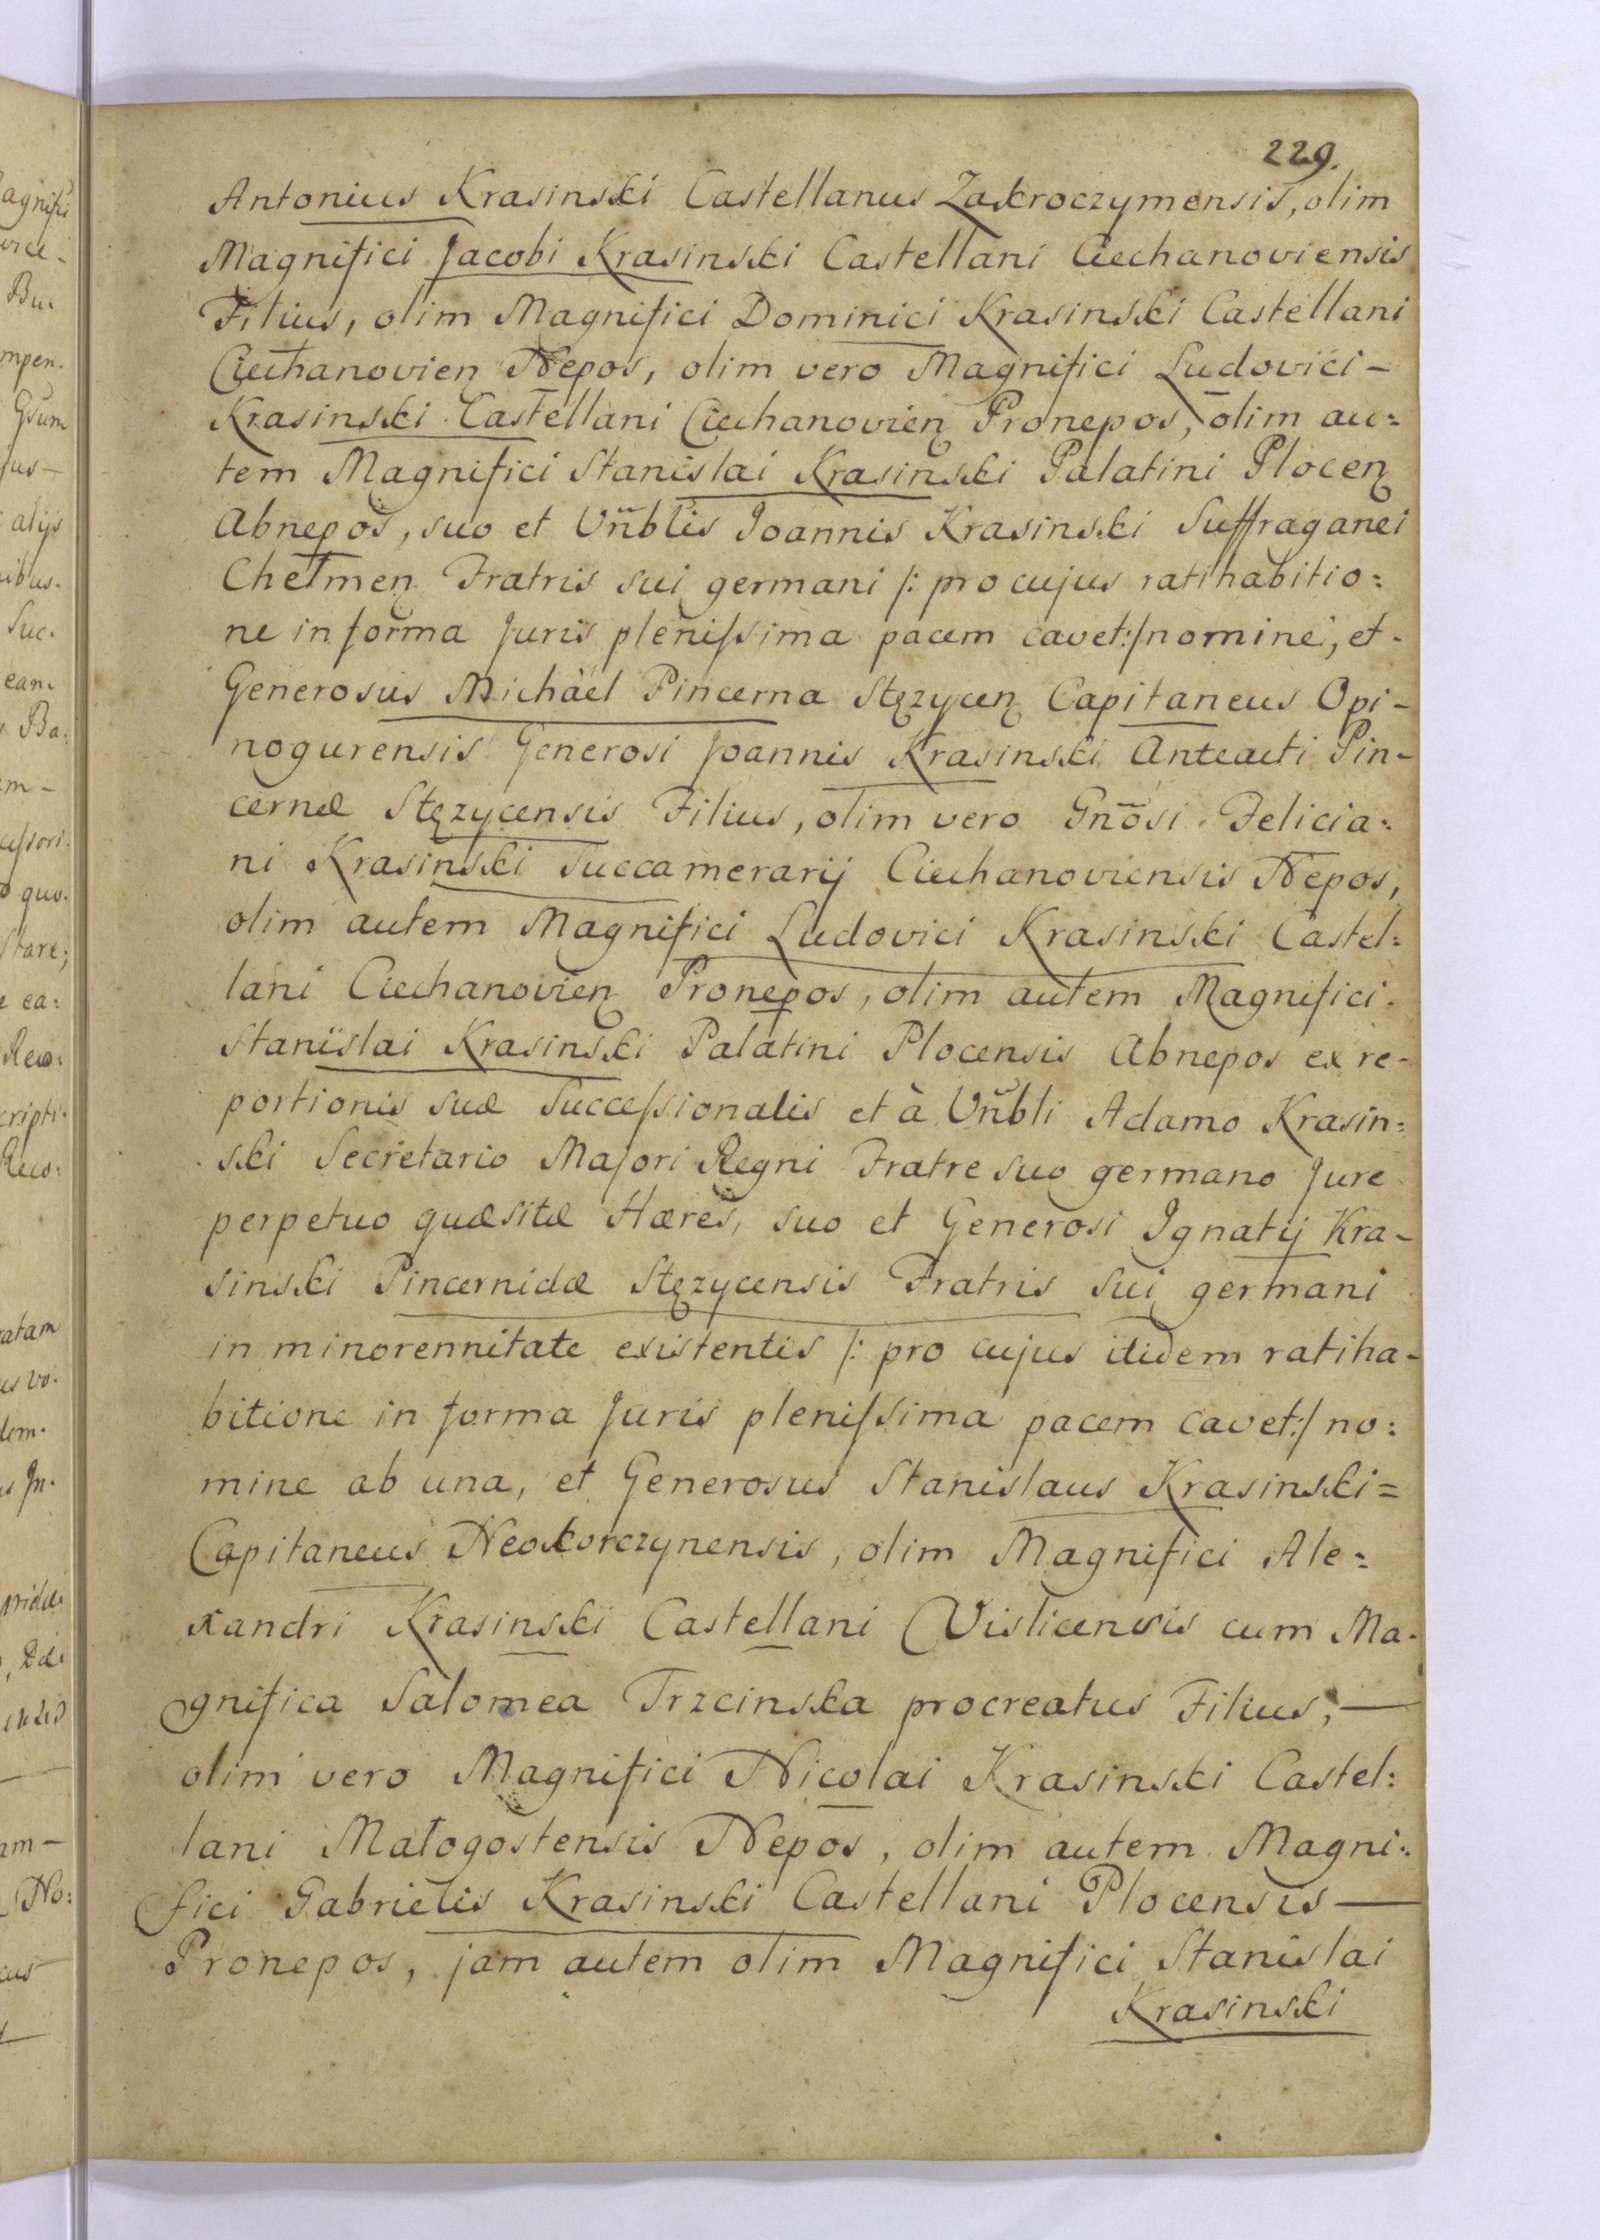 229.
Antonius Krasinski Castellanus Zakroczymensis, olim
Magnifici Jacobi Krasinski Castellani Ciechanoviensis
Filius, olim Magnifici Dominici Krasinski Castellani
Ciechanovien Nepos, olim vero Magnifici Ludovici -
Krasinski Castellani Ciechanovien Pronepos, olim au=
tem Magnifici Stanislai Krasinski Palatini Plocen
Abnepos, suo et Vñblis Joannis Krasinski Suffraganei
Chełmen Fratris sui germani /: pro cujus ratihabitio=
ne in forma Juris plenissima pacem cavet:/ nomine, et -
Generosus Michäel Pincerna Stęzycen Capitaneus Opi-
nogurensis Generosi Joannis Krasinski Anteacti Pin-
cernæ Stęzycensis Filius, olim vero Gñosi Felicia=
ni Krasinski Succamerarij Ciechanoviensis Nepos,
olim autem Magnifici Ludovici Krasinski Castel=
lani Ciechanovien Pronepos, olim autem Magnifici.
Stanislai Krasinski Palatini Plocensis Abnepos ex re-
portionis suæ Successionalis et à Vñbli Adamo Krasin=
ski Secretario Majori Regni Fratre suo germano Jure
perpetuo quæsitæ Hæres, suo et Generosi Ignatij Kra-
sinski Pincernidæ Stęzycensis Fratris sui germani
in minorennitate existentis /: pro cujus itidem ratiha-
bitione in forma Juris plenissima pacem cavet:/ no=
mine ab una, et Generosus Stanislaus Krasinski=
Capitaneus Neokorczynensis, olim Magnifici Ale=
xandri Krasinski Castellani Vislicensis cum Ma-
gnifica Salomea Trzcinska procreatus Filius, —
olim vero Magnifici Nicolai Krasinski Castel=
lani Małogostensis Nepos, olim autem Magni=
fici Gabrielis Krasinski Castellani Plocensis —
Pronepos, jam autem olim Magnifici Stanislai
Krasinski